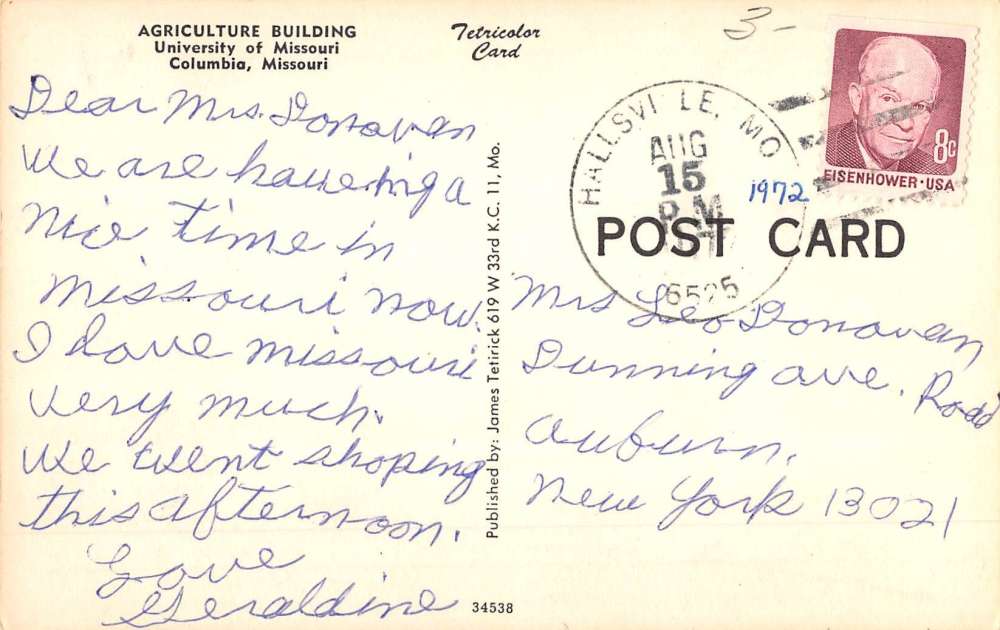 AGRICULTURE BUILDING
University of Missouri
Columbia, Missouri
Tetricolor
Card
3-
HALLSVILLE, MO
AUG
15
P.M
1972
EISENHOWER·USA
8c
POST CARD
Dear Mrs. Donovan
We are haveing a
Nice time in
Missouri now.
I love Missouri
very much.
We went shoping
this afternoon.
Love
Geraldine
Published by: James Tetirick 619 W 33rd K.C. 11, Mo.
Mrs Leo Donovan
Dunning ave. Road
Auburn,
New York 13021
34538